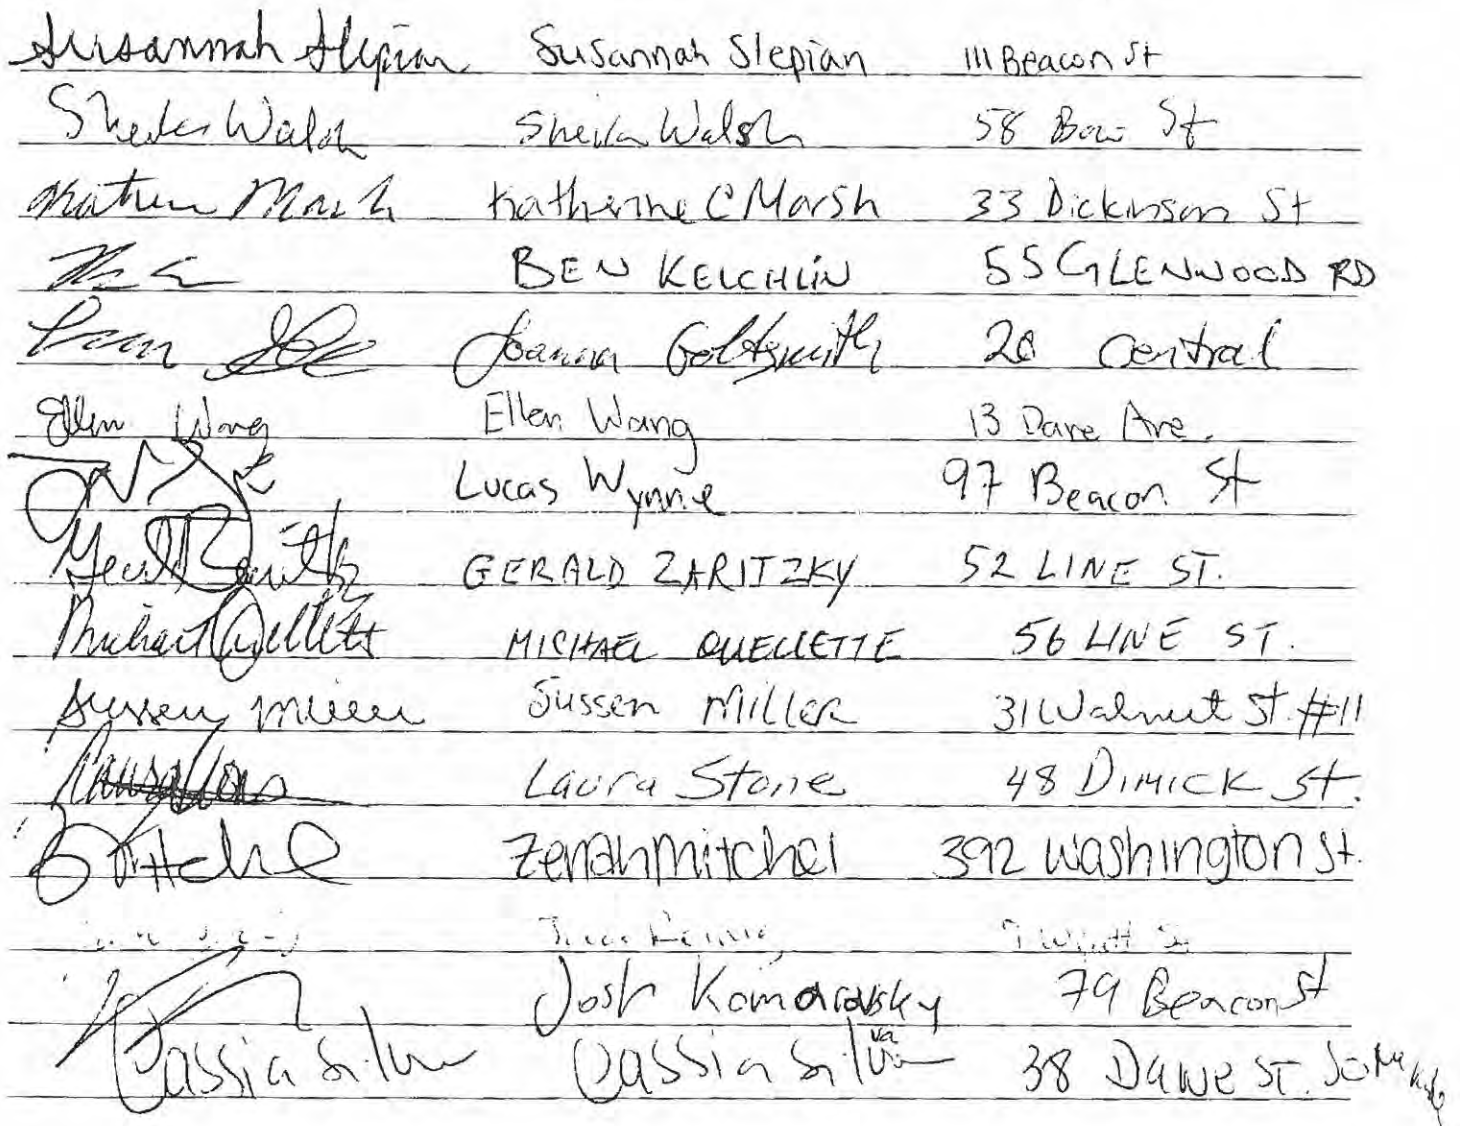 Susannah Slepian Susannah Slepian 111 Beacon St
Sheila Walsh Sheila Walsh 58 Bow St
Marsh Katherine C Marsh 33 Dickinson St
BEN KELCHLIN 55 GLENWOOD RD
Joanna Goldsmith 20 Central
Ellen Wang Ellen Wang 13 Dane Ave.
Lucas Wynne 97 Beacon St
GERALD ZARITZKY 52 LINE ST.
Michael Ouellette MICHAEL OUELLETTE 56 LINE ST.
Sussen Miller Sussen Miller 31 Walnut St. #11
Laura Stone 48 DIMICK St.
Zenah Mitchel 392 Washington St.
Josh Komarovsky 79 Beacon St
Cassia Silva Cassia Silva va 38 Dawe ST.